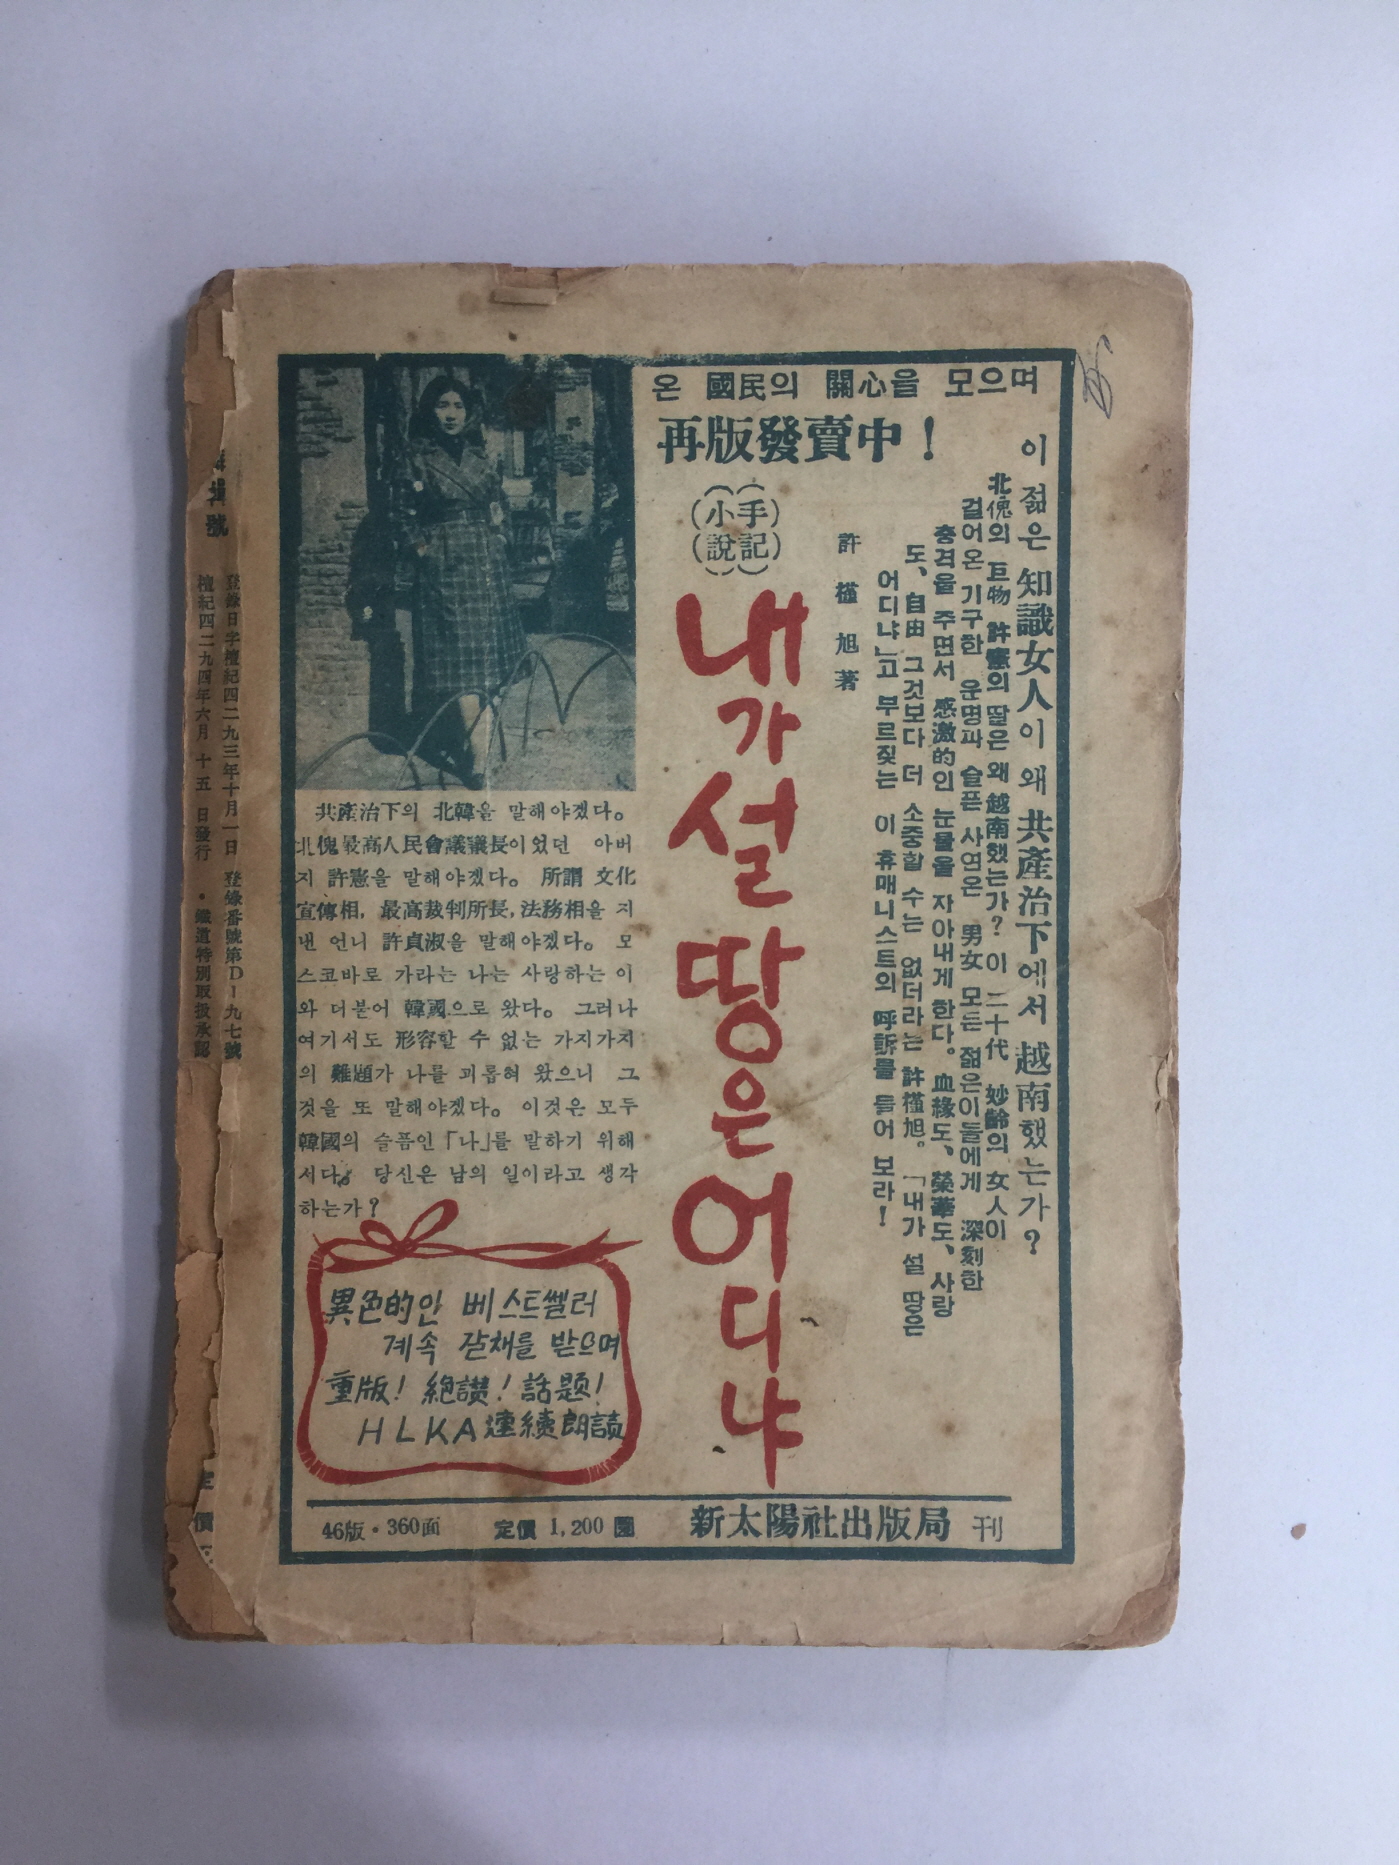 온 國民의 關心을 모으며
再版發賣中!
이 젊은 知識女人이 왜 共產治下에서 越南했는가?
北傀의 巨物 許憲의 딸은 왜 越南했는가? 이 二十代 妙齡의 女人이
걸어온 기구한 운명과 슬픈 사연은 男女 모든 젊은이들에게 深刻한
충격을 주면서 感激的인 눈물을 자아내게 한다. 血緣도、榮華도、사랑
도、自由 그것보다 더 소중할 수는 없더라는 許槿旭。「내가 설 땅은
어디냐」고 부르짖는 이 휴매니스트의 呼訴를 들어 보라!
許槿旭著
(手記)
(小說)
내가 설 땅은 어디냐
共產治下의 北韓을 말해야겠다。
北傀最高人民會議議長이었던 아버
지 許憲을 말해야겠다。 所謂 文化
宣傳相, 最高裁判所長, 法務相을 지
낸 언니 許貞淑을 말해야겠다。 모
스코바로 가라는 나는 사랑하는 이
와 더불어 韓國으로 왔다。 그러나
여기서도 形容할 수 없는 가지가지
의 難題가 나를 괴롭혀 왔으니 그
것을 또 말해야겠다。 이것은 모두
韓國의 슬픔인「나」를 말하기 위해
서다。 당신은 남의 일이라고 생각
하는가?
異色的인 베스트쎌러
계속 갈채를 받으며
重版! 絕讃! 話題!
HLKA 連續朗讀
46版・360面 定價 1,200 圜 新太陽社出版局 刊
登錄日字檀紀四二九三年十月一日 登錄番號第D-九七號
檀紀四二九四年六月 十五 日發行 ・鐵道特別取扱承認
號
價